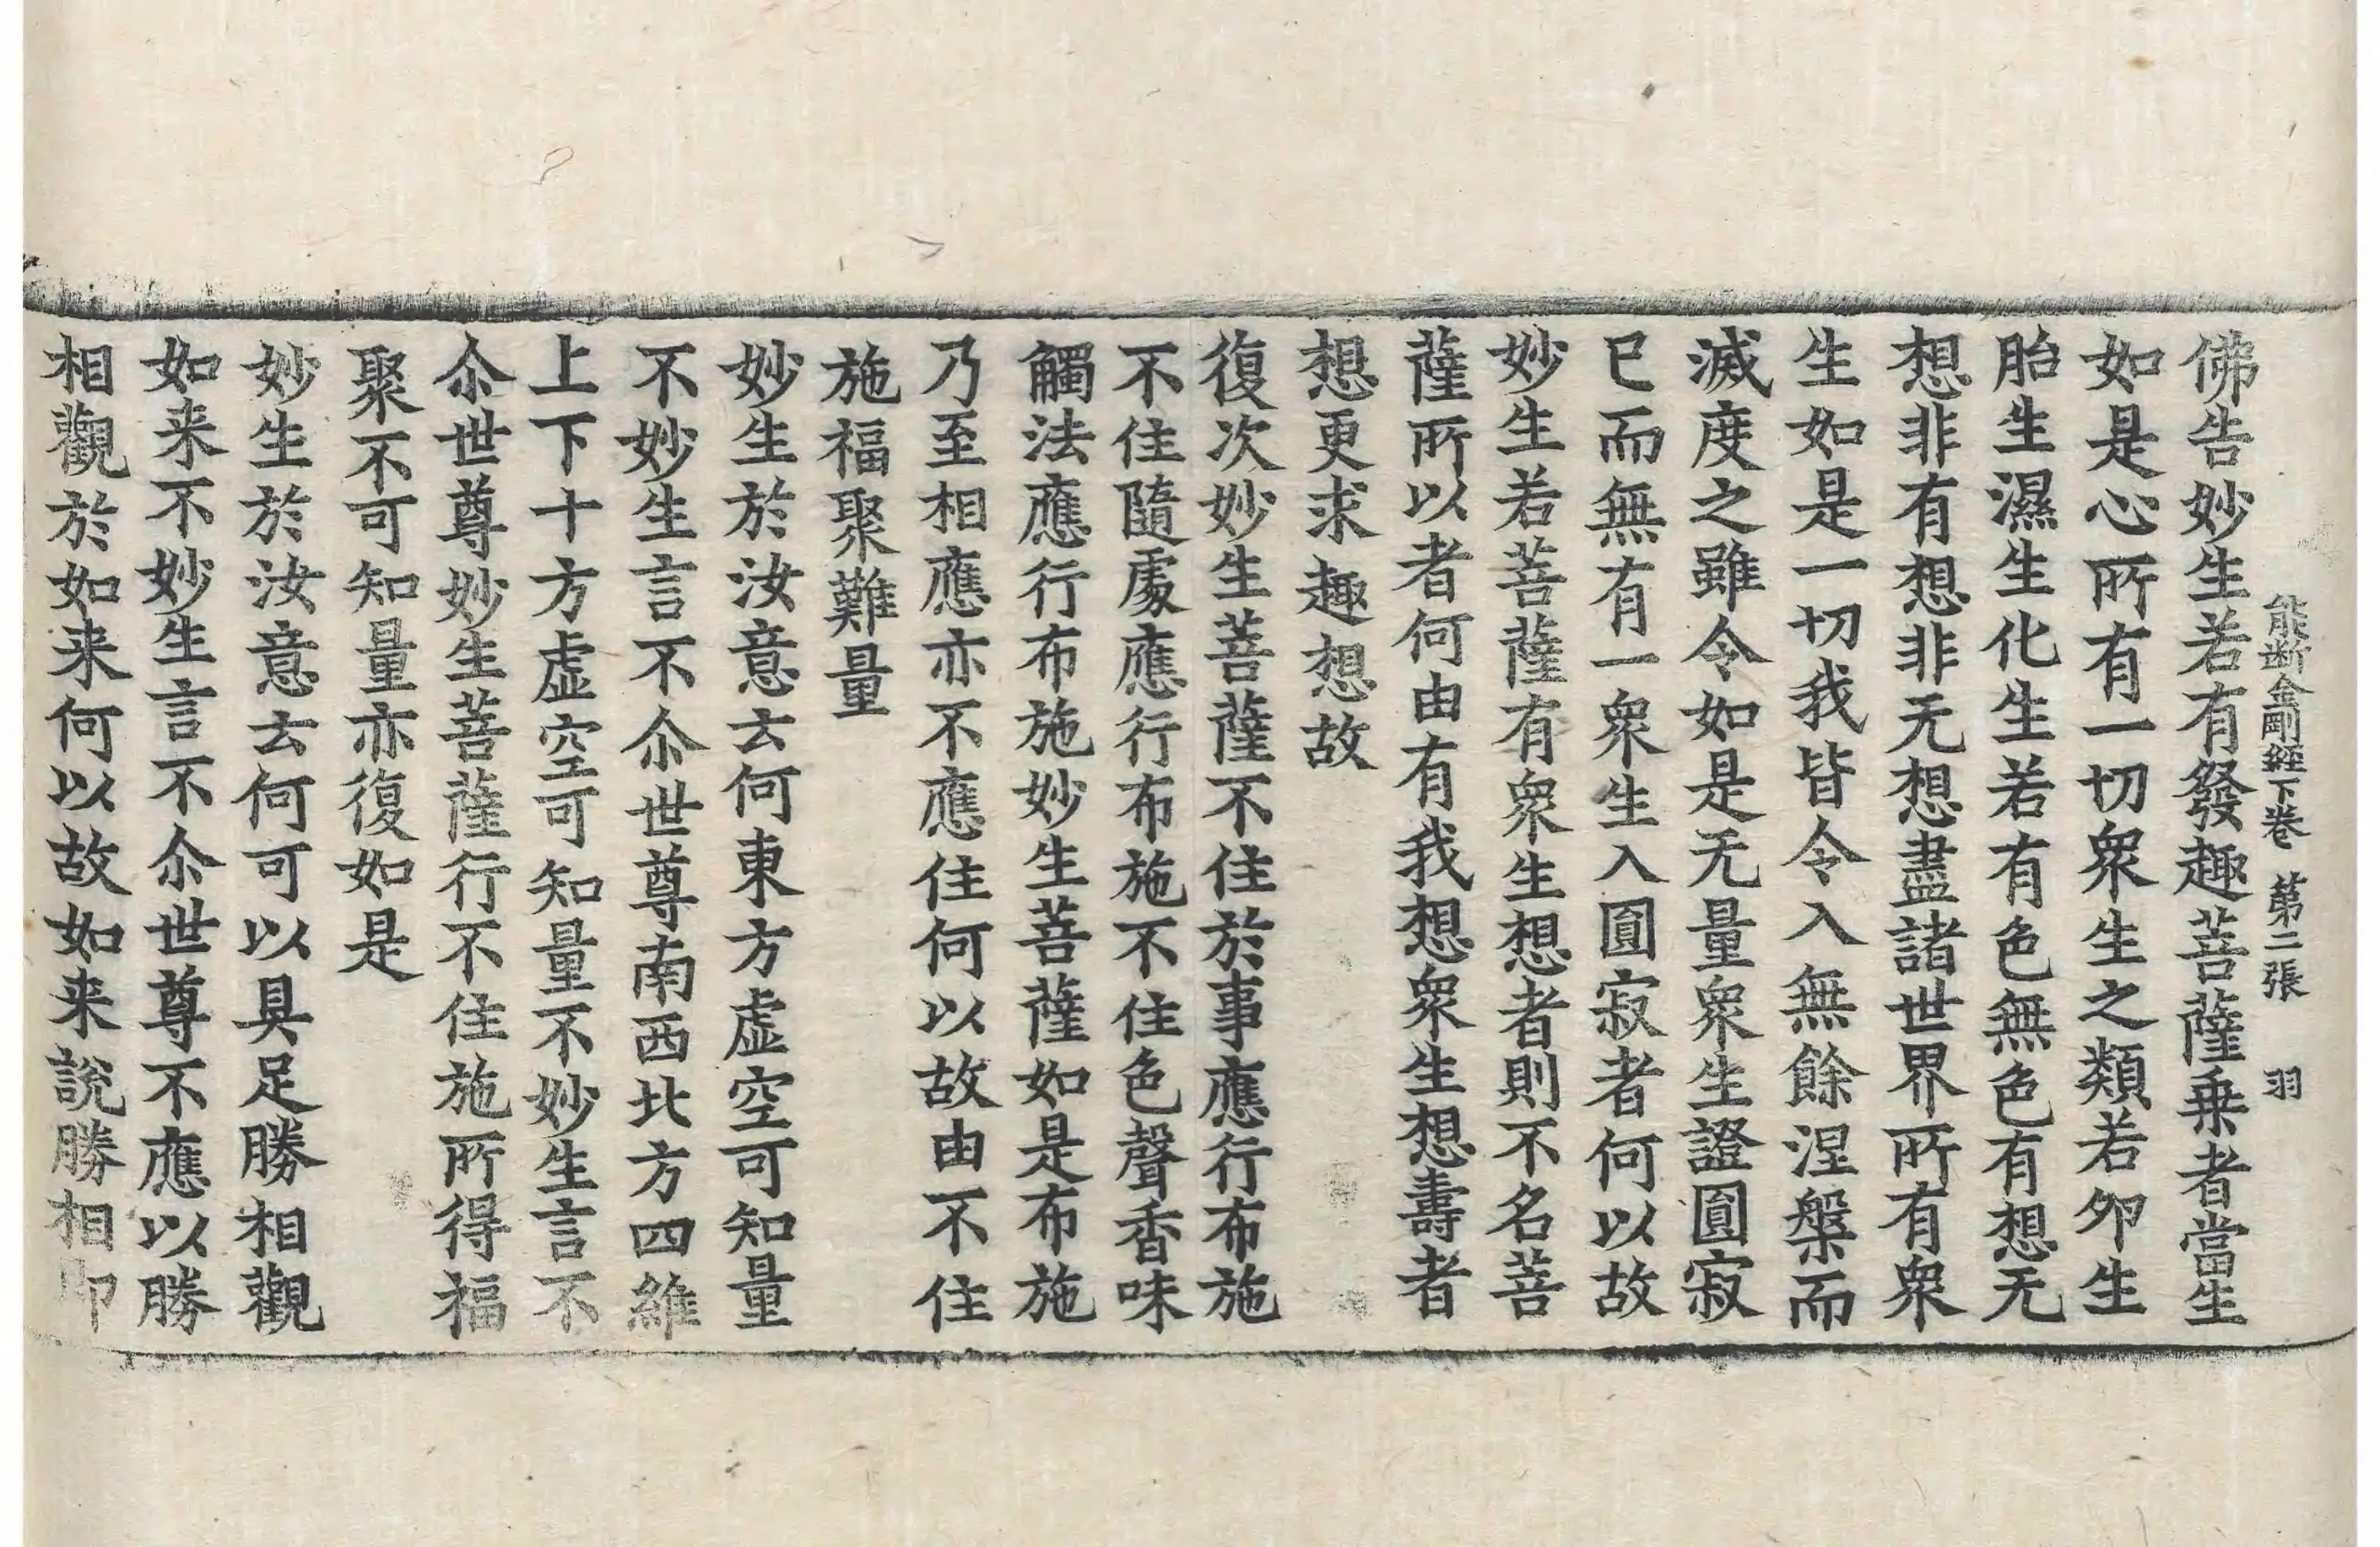 能斷金剛經下卷 第二張 羽
佛告妙生若有發趣菩薩乗者當生
如是心所有一切衆生之類若夘生
胎生濕生化生若有色無色有想无
想非有想非无想盡諸世界所有衆
生如是一切我皆令入無餘涅槃而
滅度之雖令如是无量衆生證圓寂
已而無有一衆生入圓寂者何以故
妙生若菩薩有衆生想者則不名菩
薩所以者何由有我想衆生想壽者
想更求趣想故
復次妙生菩薩不住於事應行布施
不住隨處應行布施不住色聲香味
觸法應行布施妙生菩薩如是布施
乃至相應亦不應住何以故由不住
施福聚難量
妙生於汝意云何東方虚空可知量
不妙生言不尒世尊南西北方四維
上下十方虚空可知量不妙生言不
尒世尊妙生菩薩行不住施所得福
聚不可知量亦復如是
妙生於汝意云何可以具足勝相觀
如来不妙生言不尒世尊不應以勝
相觀於如来何以故如来説勝相即